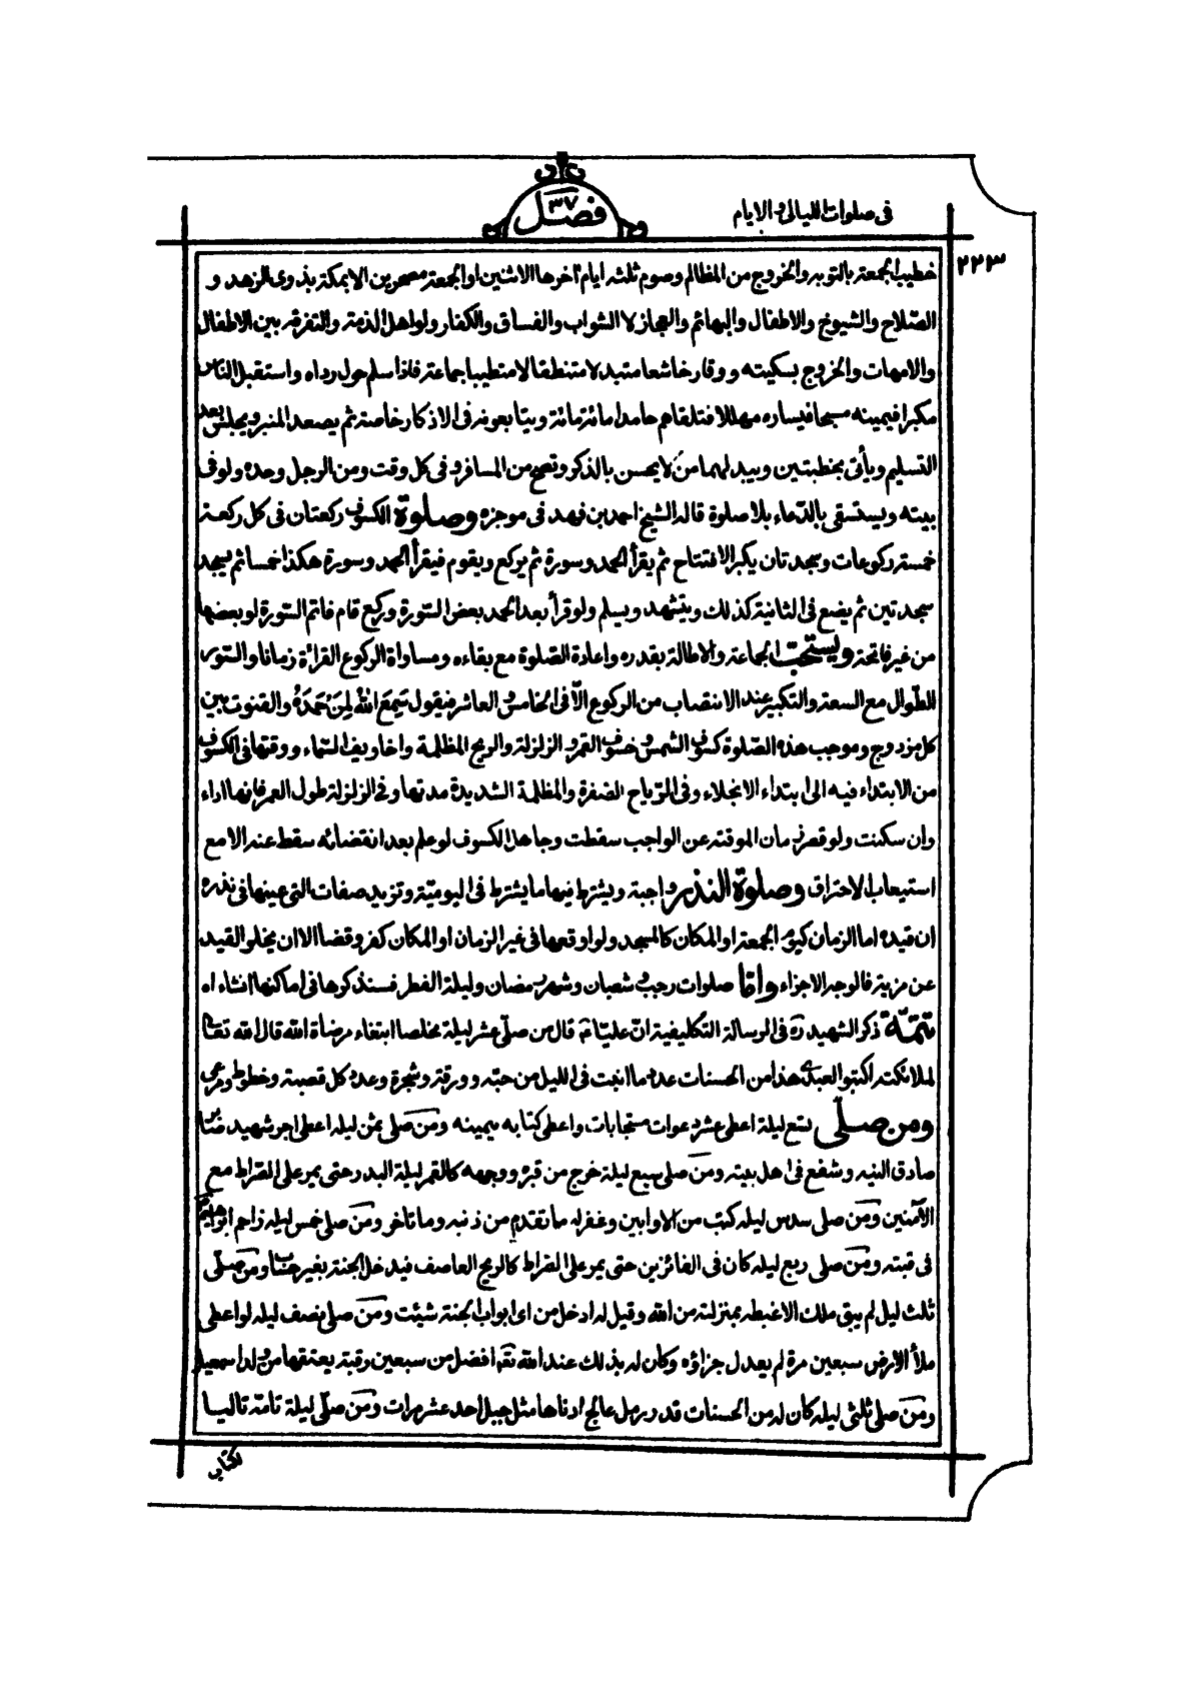 فى صلوات الليالى والايام
فصل ٣٧
٢٢٣
خطيب الجمعة بالتوبه والخروج من المظالم وصوم ثلثه ايام آخرها الاثنين او الجمعة مصحرين الا بمكة بذوى الزهد و
الصّلاح والشيوخ والاطفال والبهائم والعجائز لا الشواب والفساق والكفار ولو اهل الذمة والتفرقه بين الاطفال
والامهات والخروج بسكينه ووقار خاشعا متبدلا متنطقا لا متطيبا جماعة فاذا سلم حول رداه واستقبل الناس
مكبرا فيمينه مسبحا فيساره مهللا فتلقاهم حامدا مائة مائة ويتابعونه فى الاذكار خاصة ثم يصعد المنبر ويجلس بعد
التسليم ويأتى بخطبتين ويبدلهما من لا يحسن بالذكر وتصح من المسافر و فى كل وقت ومن الرجل وحده ولو فى
بيته ويستسقى بالدّعاء بلا صلوة قاله الشيخ احمد بن فهد فى موجزه وصلوة الكسوف ركعتان فى كل ركعة
خمسة ركوعات وسجدتان يكبر الافتتاح ثم يقرأ الحمد وسورة ثم يركع ويقوم فيقرأ الحمد وسورة هكذا خمسا ثم يسجد
سجدتين ثم يضع فى الثانية كذلك ويتشهد ويسلم ولو قرأ بعد الحمد بعض السّورة وركع قام فاتم السّورة او بعضها
من غير فاتحة ويستحبّ الجماعة والاطالة بقدره واعادة الصّلوة مع بقاءه ومساواة الركوع القراءة زمانا والسّور
الطّوال مع السعة والتكبير عند الانتصاب من الركوع الّا فى الخامس والعاشر فيقول سَمِعَ اللهُ لِمَنْ حَمَدَهُ والقنوت بين
كل مزدوج وموجب هذه الصّلوة كسوف الشمس وخسوف القمر و الزلزلة والريح المظلمة واخاويف السّماء ووقتها فى الكسوف
من الابتداء فيه الى ابتداء الانجلاء وفى الرّياح الصفرة والمظلمة الشديدة مدتها وفى الزلزلة طول العمر فانها اداء
وان سكنت ولو قصر زمان الموقتة عن الواجب سقطت وجاهل الكسوف لو علم بعد انقضائه سقط عنه الا مع
استيعاب الاحتراق وصلوة النذر واجبة ويشترط فيها ما يشترط فى اليوميّة وتزيد صفات التى عينها فى نذره
ان قيده اما الزمان كيوم الجمعة او المكان كالمسجد ولو اوقعها فى غير الزمان او المكان كفر وقضا الا ان يخلو القيد
عن مزية فالوجه الاجزاء وامّا صلوات رجب و شعبان وشهر رمضان وليلة الفطر فسنذكرها فى اماكنها انشاءاه
تتمّة ذكر الشهيد ره فى الرسالة التكليفية انّ عليّا ع قال من صلّى عشر ليلة مخلصا ابتغاء مرضاة الله قال الله تعا
لملائكته اكتبو العبدى هذا من الحسنات عدد ما انبت فى الليل من حبّه وورقة وشجرة وعدد كل قصبة وخطوط ومرعى
ومن صلّى تسع ليلة اعطى عشر دعوات مستجابات واعطى كتابه بيمينه ومن صلى ثمن ليله اعطى اجر شهيد صابر
صادق النيه وشفع فى اهل بيته ومن صلى سبع ليلة خرج من قبره ووجهه كالقمر ليلة البدر حتى يمر على الصّراط مع
الآمنين ومن صلى سدس ليله كتب من الاوابين وغفر له ما تقدم من ذنبه وما تاخر ومن صلى خمس ليله زاحم ابراهيم ع
فى قبته ومن صلى ربع ليله كان فى الفائزين حتى يمر على الصّراط كالريح العاصف فيدخل الجنة بغير حساب ومن صلّى
ثلث ليل لم يبق ملك الا غبطه بمنزلته من الله وقيل له ادخل من اى ابواب الجنة شيئت ومن صلى نصف ليله لو اعطى
ملأ الارض سبعين مرة لم يعدل جزاؤه وكان له بذلك عند الله تع افضل من سبعين رقبة يعتقها من ولد اسمعيل
ومن صلى ثلثى ليله كان له من الحسنات قدر رمل عالج ادناها مثل جبل احد عشر مرات ومن صلّى ليلة تامّة تاليا
لكتاب